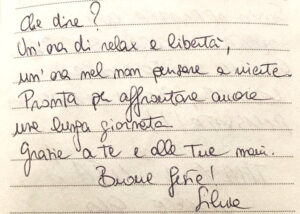 Che dire?
Un'ora di relax e libertà,
un'ora nel non pensare a niente.
Pronta per affrontare ancora
una lunga giornata
Grazie a te e alle Tue mani.
Buone feste!
Silvia